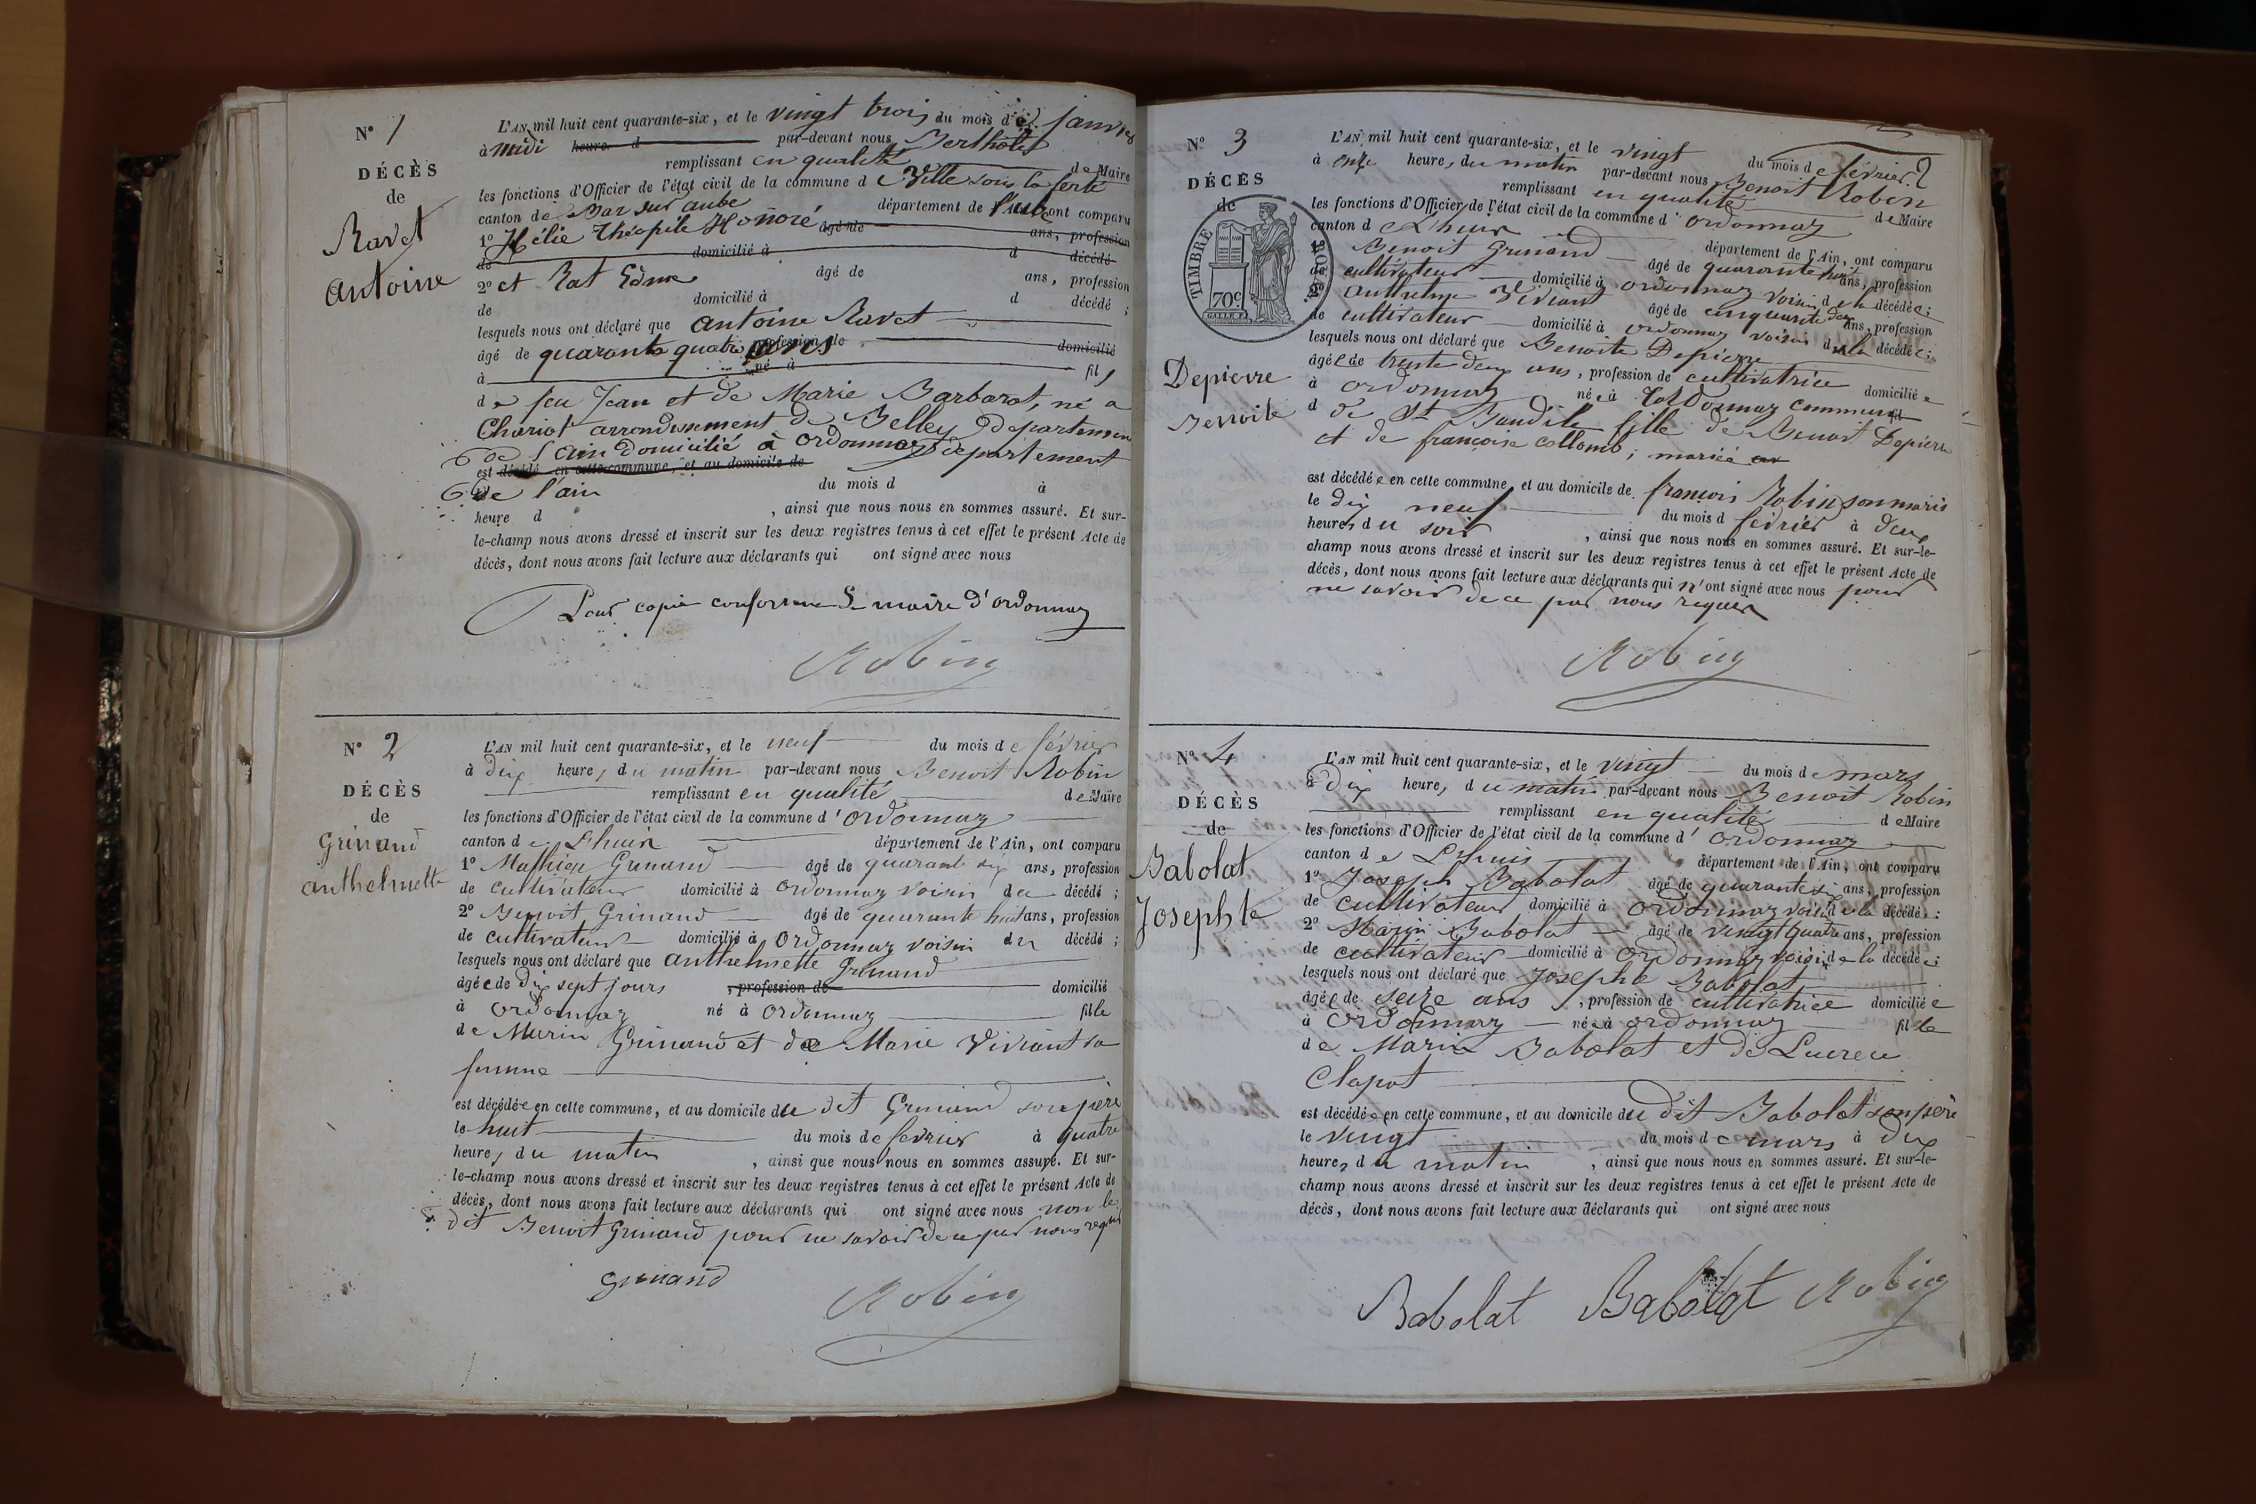 N° 1
DÉCÈS
de
Ravet
Antoine
L'AN mil huit cent quarante-six, et le vingt trois du mois de janvier
à midi heure d par-devant nous Bertholet
remplissant en qualité de Maire
les fonctions d'Officier de l'état civil de la commune de Ville sous la ferté
canton de Bar sur aube département de l'aube ont comparu
1° Hélie Théophile Honoré âgé de ans, profession
de domicilié à d décédé
2° et Rat Edme âgé de ans, profession
de domicilié à d décédé ;
lesquels nous ont déclaré que Antoine Ravet
âgé de quarante quatre ans profession de domicilié
à né à fils
de feu Jean et de Marie Barbarot, né a
arrondissement de Belley Departement
de l'ain domicilié à ordonnaz departement
est décédé en cette commune, et au domicile de
de l'ain du mois d à
heure d , ainsi que nous nous en sommes assuré. Et sur-
le-champ nous avons dressé et inscrit sur les deux registres tenus à cet effet le présent Acte de
décès, dont nous avons fait lecture aux déclarants qui ont signé avec nous
Pour copie conforme Le maire d'ordonnaz
Robin
N° 2
DÉCÈS
de
Grinand
anthelmette
L'AN mil huit cent quarante-six, et le neuf du mois de février
à dix heures du matin par-devant nous Benoit Robin
remplissant en qualité de Maire
les fonctions d'Officier de l'état civil de la commune d'ordonnaz
canton de Lhuis département de l'Ain, ont comparu
1° Mathieu Grinand âgé de quarant six ans, profession
de cultivateur domicilié à ordonnaz voisin du décédé ;
2° Benoit Grinand âgé de quarante huit ans, profession
de cultivateur domicilié à ordonnaz voisin du décédé ;
lesquels nous ont déclaré que anthelmette Grinand
âgée de dix sept jours , profession de domicilié
à ordonnaz né à ordonnaz fille
de Marin Grinand et de Marie Viviant sa
femme
est décédée en cette commune, et au domicile du dit Grinand son père
le huit du mois de fevrier à quatre
heures du matin , ainsi que nous nous en sommes assuré. Et sur-
le-champ nous avons dressé et inscrit sur les deux registres tenus à cet effet le présent Acte de
décès, dont nous avons fait lecture aux déclarants qui ont signé avec nous non le
dit Benoit Grinand pour ne savoir de ce par nous requis
grinand
Robin
2
N° 3
DÉCÈS
de
TIMBRE ROYAL
70c
Depierre
Benoite
L'AN mil huit cent quarante-six, et le vingt du mois de février
à onze heures du matin par-devant nous Benoit Robin
remplissant en qualité de Maire
les fonctions d'Officier de l'état civil de la commune d'ordonnaz
canton de Lhuis département de l'Ain, ont comparu
1° Benoit Grinand âgé de quarante huit ans, profession
de cultivateur domicilié à ordonnaz voisin de la décédée ;
2° anthelme Viviant âgé de cinquante deux ans, profession
de cultivateur domicilié à ordonnaz voisin de la décédée ;
lesquels nous ont déclaré que Benoite Depierre
âgée de trente deux ans, profession de cultivatrice domiciliée
à ordonnaz née à commune fil
d de St Baudile fille de Benoit Depierre
et de françoise collomb ; mariée
est décédée en cette commune et au domicile de françois Robin son maris
le dix neuf du mois d février à deux
heures du soir , ainsi que nous nous en sommes assuré. Et sur-le-
champ nous avons dressé et inscrit sur les deux registres tenus à cet effet le présent Acte de
décès, dont nous avons fait lecture aux déclarants qui n'ont signé avec nous pour
ne savoir de ce par nous requis
Robin
N° 4
DÉCÈS
de
Babolat
Josephte
L'AN mil huit cent quarante-six, et le vingt du mois de mars
à dix heures, du matin par-devant nous Benoit Robin
remplissant en qualité de Maire
les fonctions d'Officier de l'état civil de la commune d'ordonnaz
canton de Lhuis département de l'Ain, ont comparu
1° Joseph Babolat âgé de quarante six ans, profession
de cultivateur domicilié à ordonnaz voisin de la décédée ;
2° Marin Babolat âgé de vingt quatre ans, profession
de cultivateur domicilié à ordonnaz voisin de la décédée ;
lesquels nous ont déclaré que Josephte Babolat
âgée de seize ans , profession de cultivatrice domiciliée
à ordonnaz née à ordonnaz fille
de Marin Babolat et de Lucrece
Clapot
est décédée en cette commune, et au domicile du dit Babolat son père
le vingt du mois de mars à dix
heures du matin , ainsi que nous nous en sommes assuré. Et sur-le-
champ nous avons dressé et inscrit sur les deux registres tenus à cet effet le présent Acte de
décès, dont nous avons fait lecture aux déclarants qui ont signé avec nous
Babolat Babolat Robin